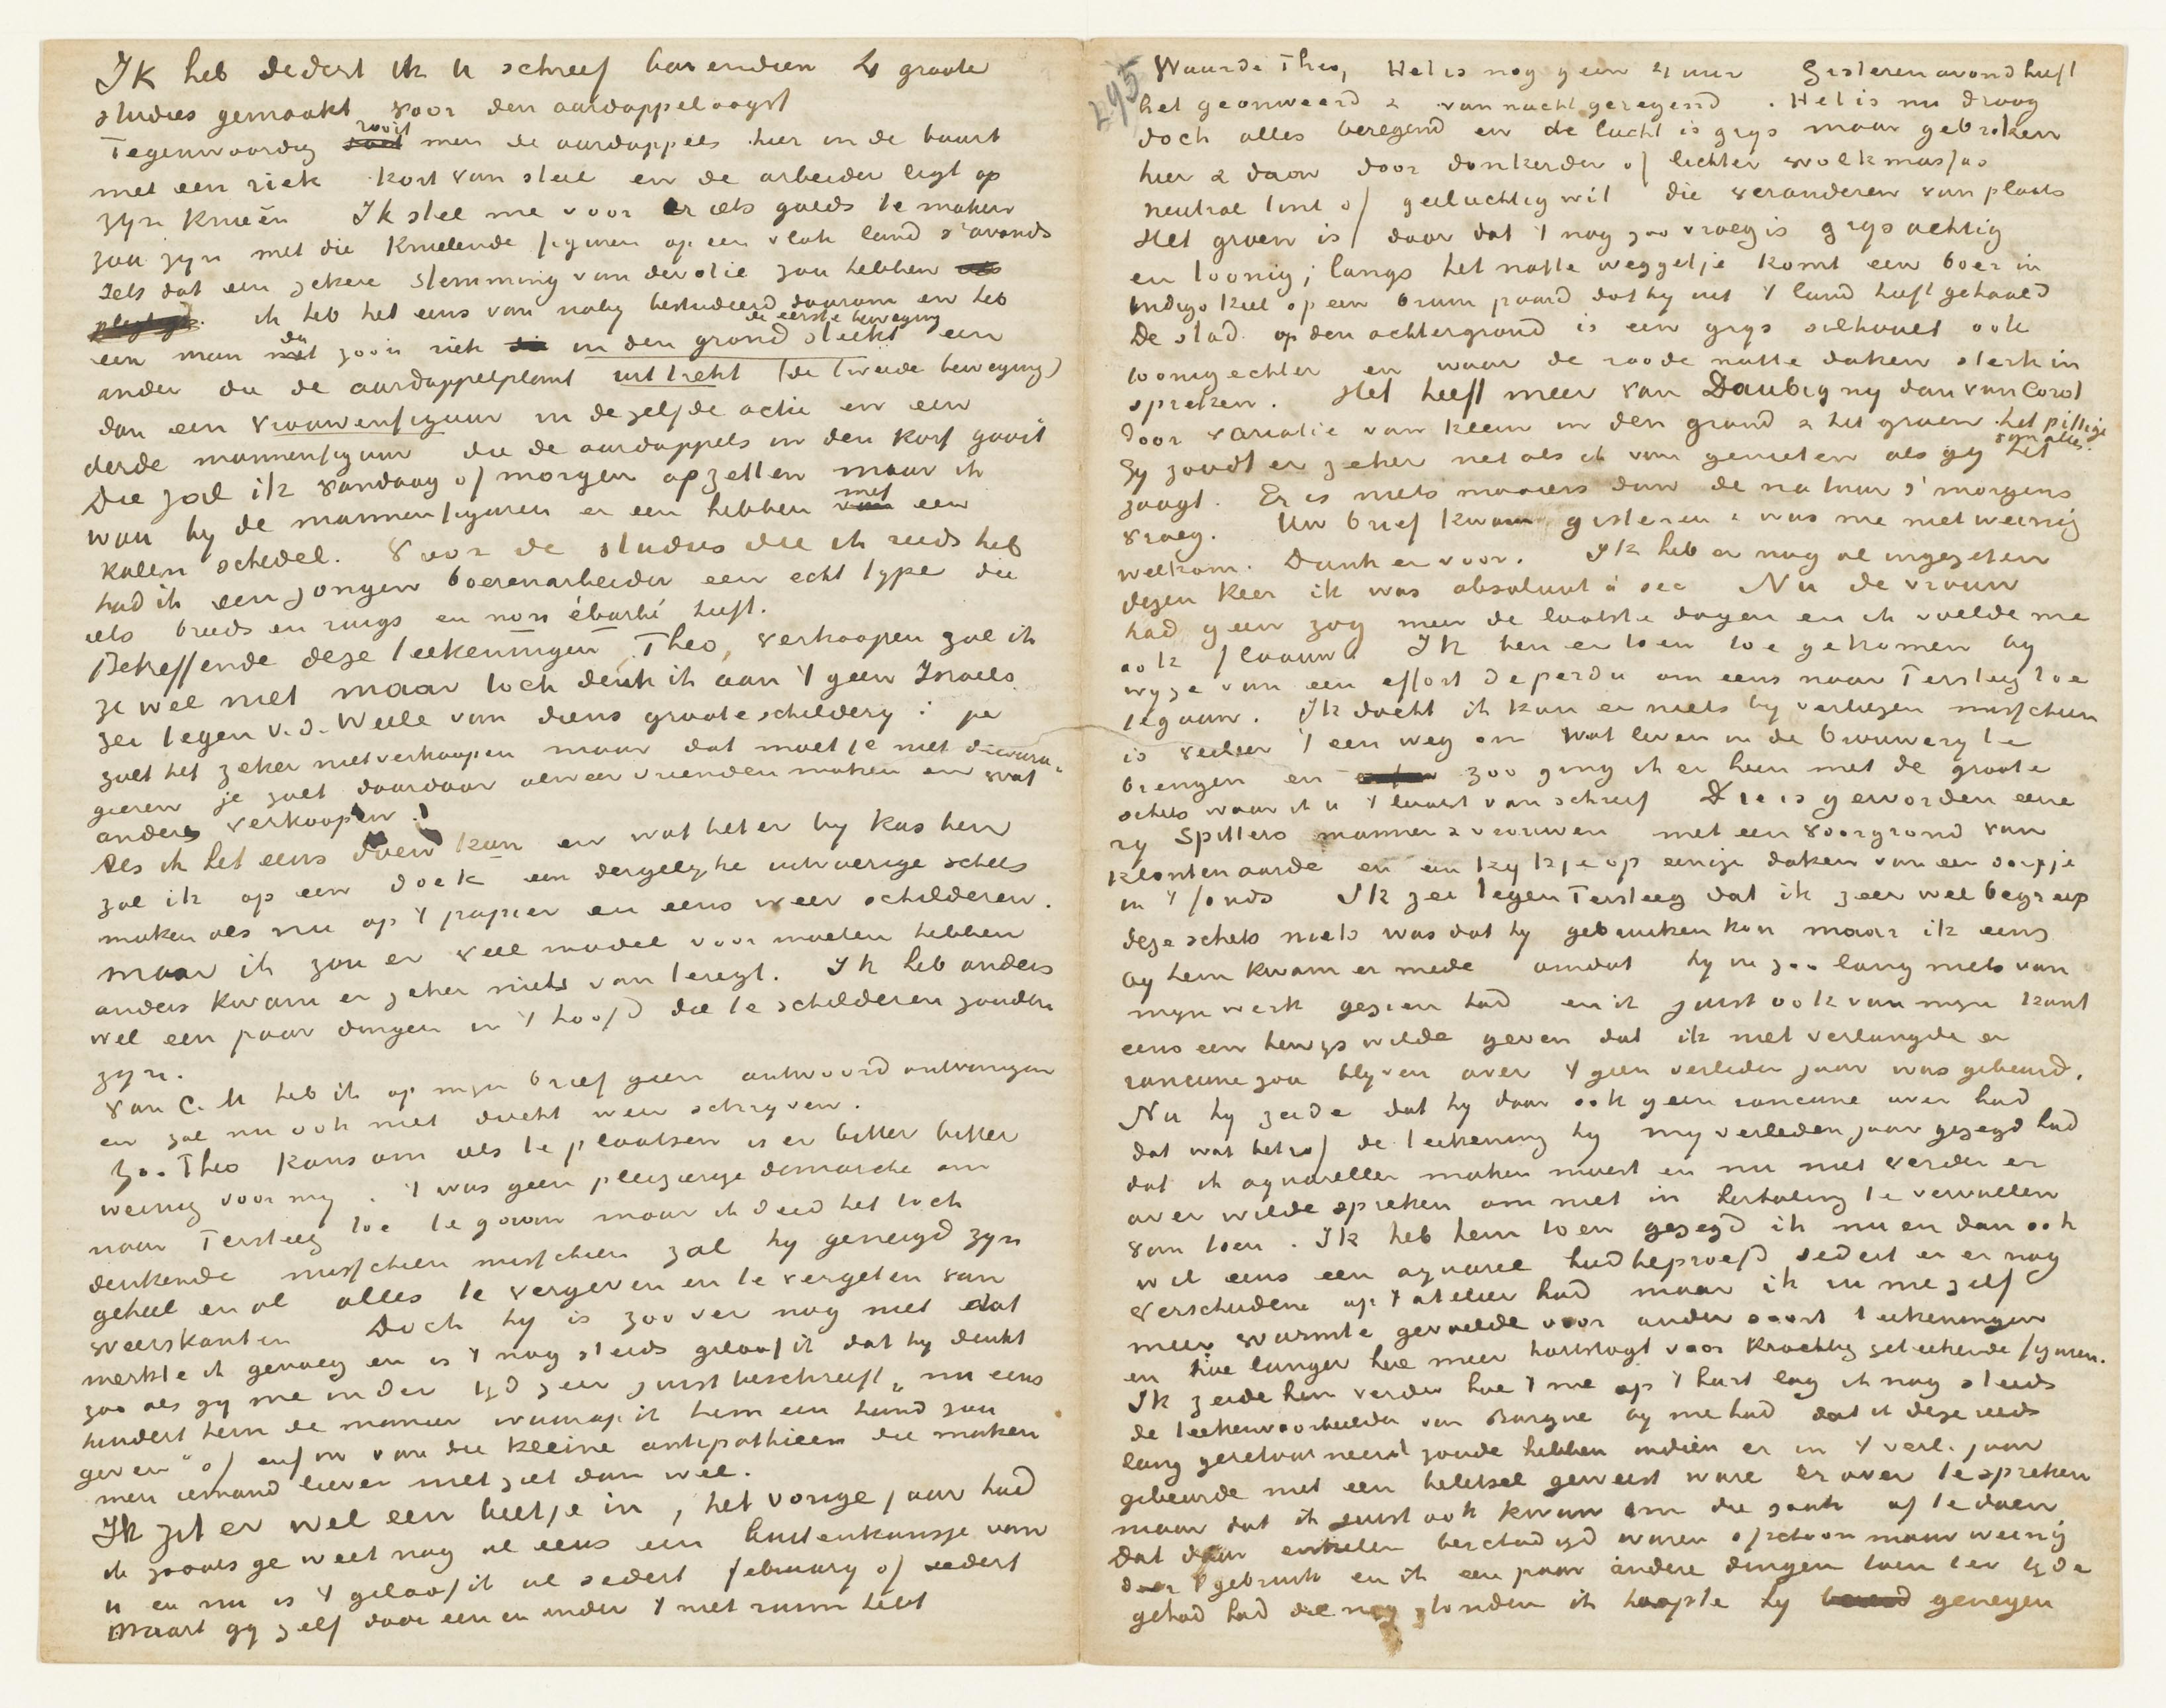 Ik heb sedert ik u schreef bovendien 4 groote
studies gemaakt voor den aardappeloogst
Tegenwoordig rooit men de aardappels hier in de buurt
met een riek kort van steel en de arbeider ligt op
zyn knieën Ik stel me voor er iets goeds te maken
zou zyn met die knielende figuren op een vlak land s'avonds
Iets dat een zekere stemming van devotie zou hebben
ik heb het eens van naby bestudeerd daarom en heb
een man die zoo'n riek in den grond steekt de eerste beweging een
ander die de aardappelplant uittrekt (de tweede beweging)
dan een vrouwenfiguur in dezelfde actie en een
derde mannenfiguur die de aardappels in den korf gooit
Die zal ik vandaag of morgen opzetten maar ik
wou by de mannenfiguren er een hebben met een
kalen schedel. Voor de studies die ik reeds heb
had ik een jongen boerenarbeider een echt type die
iets breeds en ruigs en non ébarbé heeft.
Betreffende deze teekeningen, Theo, verkoopen zal ik
ze wel niet maar toch denk ik aan 't geen Israels
zei tegen v.d. Weele van diens groote schildery: je
zult het zeker niet verkoopen maar dat moet je niet decoura-
geeren je zult daardoor alweer vrienden maken en wat
anders verkoopen!
Als ik het eens doen kan en wat heter by kas ben
zal ik op een doek een dergelyke uitvoerige schets
maken als nu op 't papier en eens weer schilderen.
maar ik zou er veel model voor moeten hebben
anders kwam er zeker niets van teregt. Ik heb anders
wel een paar dingen in 't hoofd die te schilderen zouden
zyn.
Van C.M heb ik op myn brief geen antwoord ontvangen
en zal nu ook niet direkt weer schryven.
Zoo Theo kans om iets te plaatsen is er bitter bitter
weinig voor my. 't was geen pleizierige demarche om
naar Tersteeg toe te gaan maar ik deed het toch
denkende misschien misschien zal hy geneigd zyn
geheel en al alles te vergeven en te vergeten van
weerskanten Doch hy is zoo ver nog niet dat
merkte ik genoeg en is 't nog steeds geloof ik dat hy denkt
zoo als gy me in der tyd zeer juist beschreeft, "nu eens
hindert hem de manier waarop ik hem een hand zou
geven" of enfin van die kleine antipathieen die maken
men iemand liever niet ziet dan wel.
Ik zit er wel een beetje in, het vorige jaar had
ik zooals ge weet nog al eens een buitenkansje van
u en nu is 't geloof ik al sedert february of sedert
Maart gy zelf door een en ander 't niet ruim hebt
295
Waarde Theo, Het is nog geen 4 uur Gisteren avond heeft
het geonweerd & van nacht geregend. Het is nu droog
doch alles beregend en de lucht is grys maar gebroken
hier & daar door donkerder of lichter wolkmassas
neutral tint of geelachtig wit die veranderen van plaats
Het groen is door dat 't nog zoo vroeg is grysachtig
en toonig; langs het natte weggetje komt een boer in
indigo kiel op een bruin paard dat hy uit 't land heeft gehaald
De stad op den achtergrond is een grys silhouet ook
toonig echter en waar de roode natte daken sterk in
spreken. Het heeft meer van Daubigny dan van Corot
door variatie van kleur in den grond & het groen het pittige van alles.
Gy zoudt er zeker net als ik van genieten als gy het
zaagt. Er is niets mooiers dan de natuur s'morgens
vroeg. Uw brief kwam gisteren & was me niet weinig
welkom. Dank er voor. Ik heb er nog al ingezeten
dezen keer ik was absoluut à sec Nu de vrouw
had geen zog meer de laatste dagen en ik voelde me
ook flaauw. Ik ben er toen toe gekomen by
wyze van een effort de perdu om eens naar Tersteeg toe
te gaan. Ik dacht ik kan er niets by verliezen misschien
is veeleer 't een weg om wat leven in de brouwery te
brengen en zoo ging ik er heen met de groote
schets waar ik u 't laatst van schreef Die is geworden eene
ry spitters mannen & vrouwen met een voorgrond van
klonten aarde en een kykje op eenige daken van een dorpje
in 't fonds Ik zei tegen Tersteeg dat ik zeer wel begreep
deze schets niets was dat hy gebruiken kon maar ik eens
by hem kwam er mede omdat hy in zoo lang niets van
myn werk gezien had en ik juist ook van myn kant
eens een bewys wilde geven dat ik niet verlangde er
rancune zou blyven over 't geen verleden jaar was gebeurd.
Nu hy zeide dat hy daar ook geen rancune over had
dat wat betrof de teekening hy my verleden jaar gezegd had
dat ik aquarellen maken moest en nu niet verder er
over wilde spreken om niet in herhaling te vervallen
van toen. Ik heb hem toen gezegd ik nu en dan ook
wel eens een aquarel had beproefd sedert en er nog
verscheidene op 't atelier had maar ik in me zelf
meer warmte gevoelde voor ander soort teekeningen
en hoe langer hoe meer hartstogt voor krachtig geteekende figuren.
Ik zeide hem verder hoe 't me op 't hart lag ik nog steeds
de teekenvoorbeelden van Bargue by me had dat ik deze reeds
lang geretourneerd zoude hebben indien er in 't verl. jaar
gebeurde niet een beletsel geweest ware er over te spreken
maar dat ik juist ook kwam om die zaak af te doen
Dat daar enkelen beschadigd waren ofschoon maar weinig
door 't gebruik en ik een paar andere dingen toen ter tyde
gehad had die nog stonden ik hoopte hy genegen